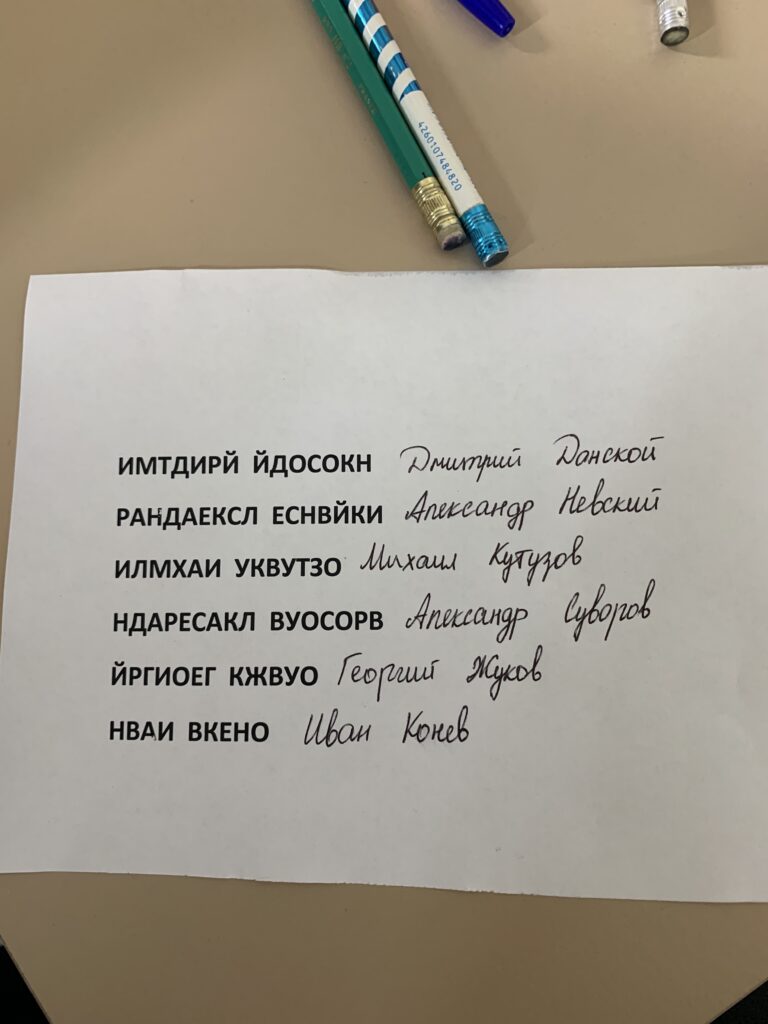 4260107484820
ИМТДИРЙ ЙДОСОКН Дмитрий Донской
РАНДАЕКСЛ ЕСНВЙКИ Александр Невский
ИЛМХАИ УКВУТЗО Михаил Кутузов
НДАРЕСАКЛ ВУОСОРВ Александр Суворов
ЙРГИОЕГ КЖВУО Георгий Жуков
НВАИ ВКЕНО Иван Конев